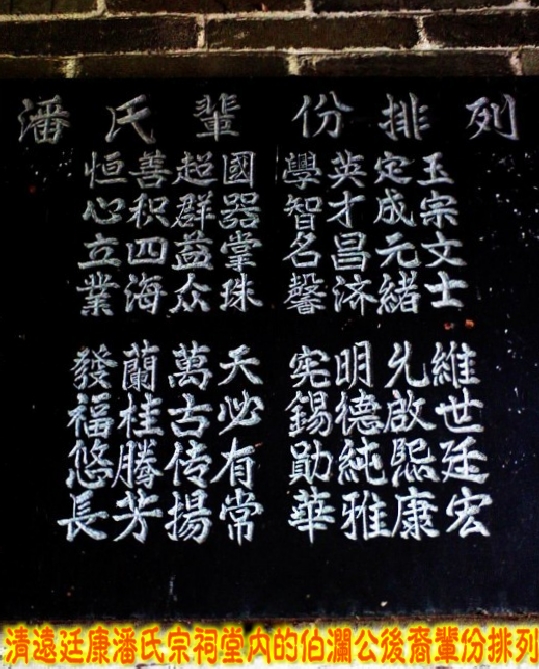 潘氏輩份排列
玉宗文士 維世廷宏
定成元緒 允啟熙康
英才昌济 明德純雅
學智名馨 宪錫勛華
國器掌珠 天必有常
超群益众 萬古传揚
善积四海 蘭桂騰芳
恒心立業 發福悠長
清遠廷康潘氏宗祠堂內的伯瀾公後裔輩份排列